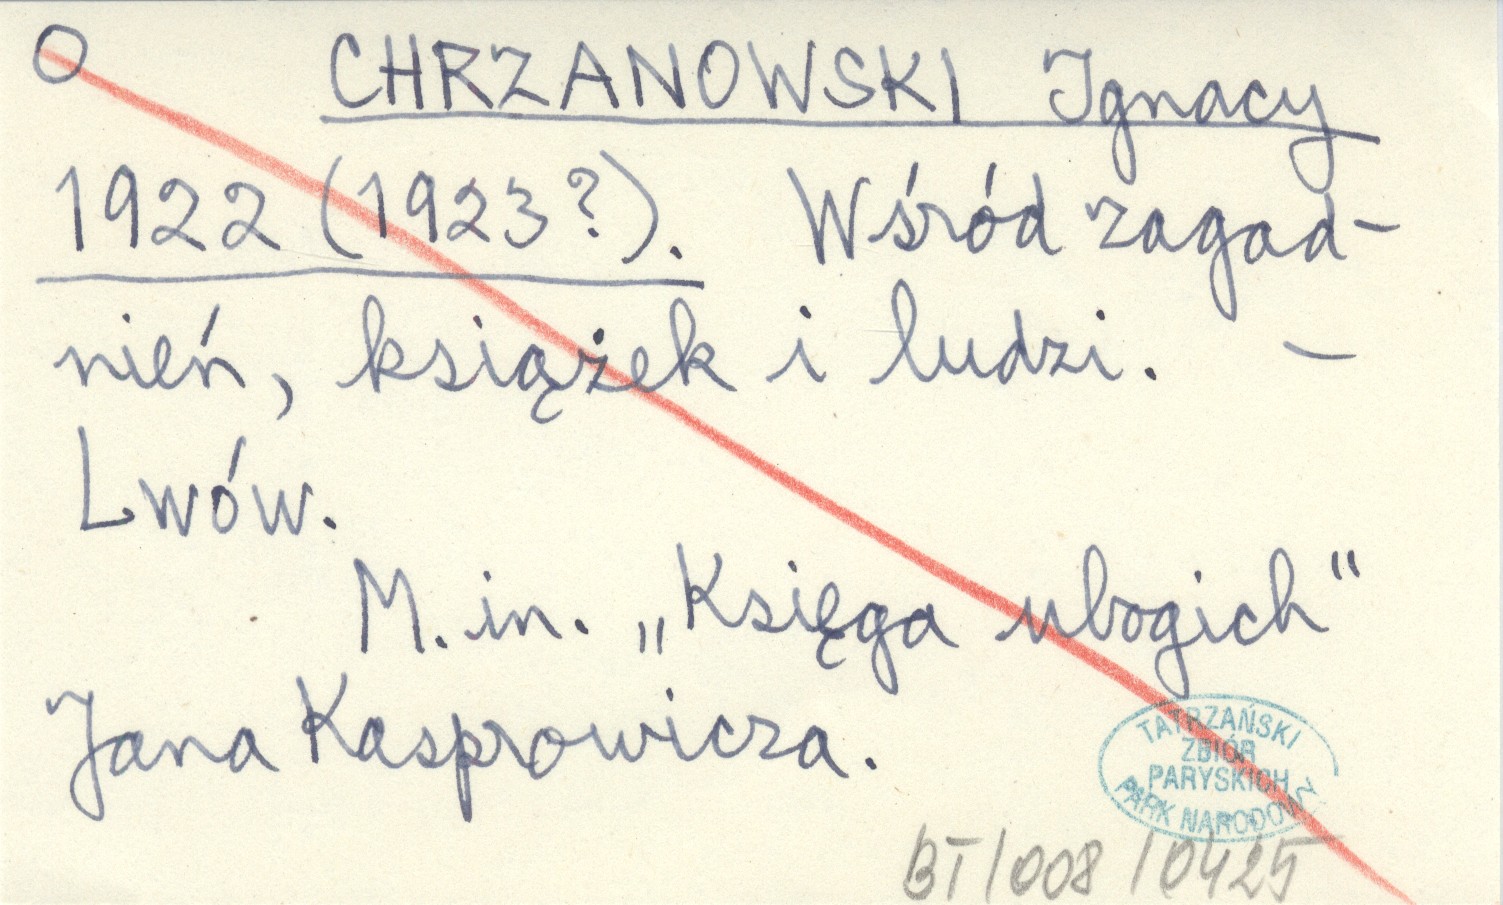 O CHRZANOWSKI Ignacy
1922 (1923?). Wśród zagad-
nień, książek i ludzi. –
Lwów.
M. in. „Księga ubogich“
Jana Kasprowicza.
TATRZAŃSKI
ZBIÓR
PARYSKICH
PARK NARODOWY
BT/008/0425